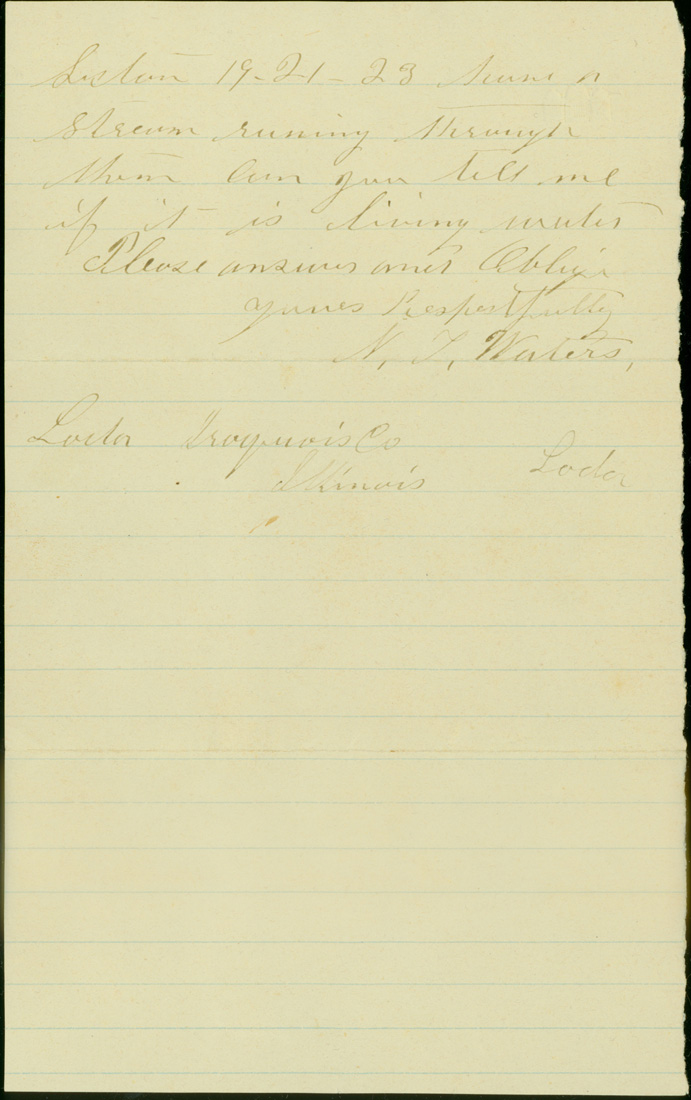 Section 19-21-23 have a
stream runing through
them can you tell me
if it is living water
Please answer and Oblige
yours Respectfully
N. T. Waters,
Loda Iroquois Co
Illinois
Loda